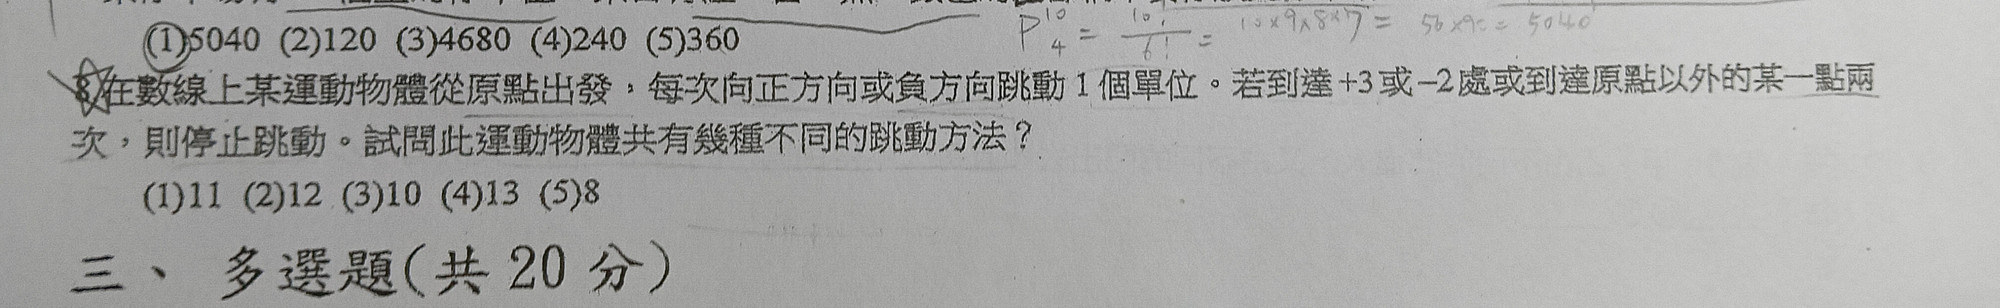 (1)5040 (2)120 (3)4680 (4)240 (5)360
P 10 4 = 10! / 6! = 10×9×8×7 = 56×90 = 5040
8.在數線上某運動物體從原點出發，每次向正方向或負方向跳動1個單位。若到達+3或−2處或到達原點以外的某一點兩
次，則停止跳動。試問此運動物體共有幾種不同的跳動方法？
(1)11 (2)12 (3)10 (4)13 (5)8
三、 多選題(共 20 分)